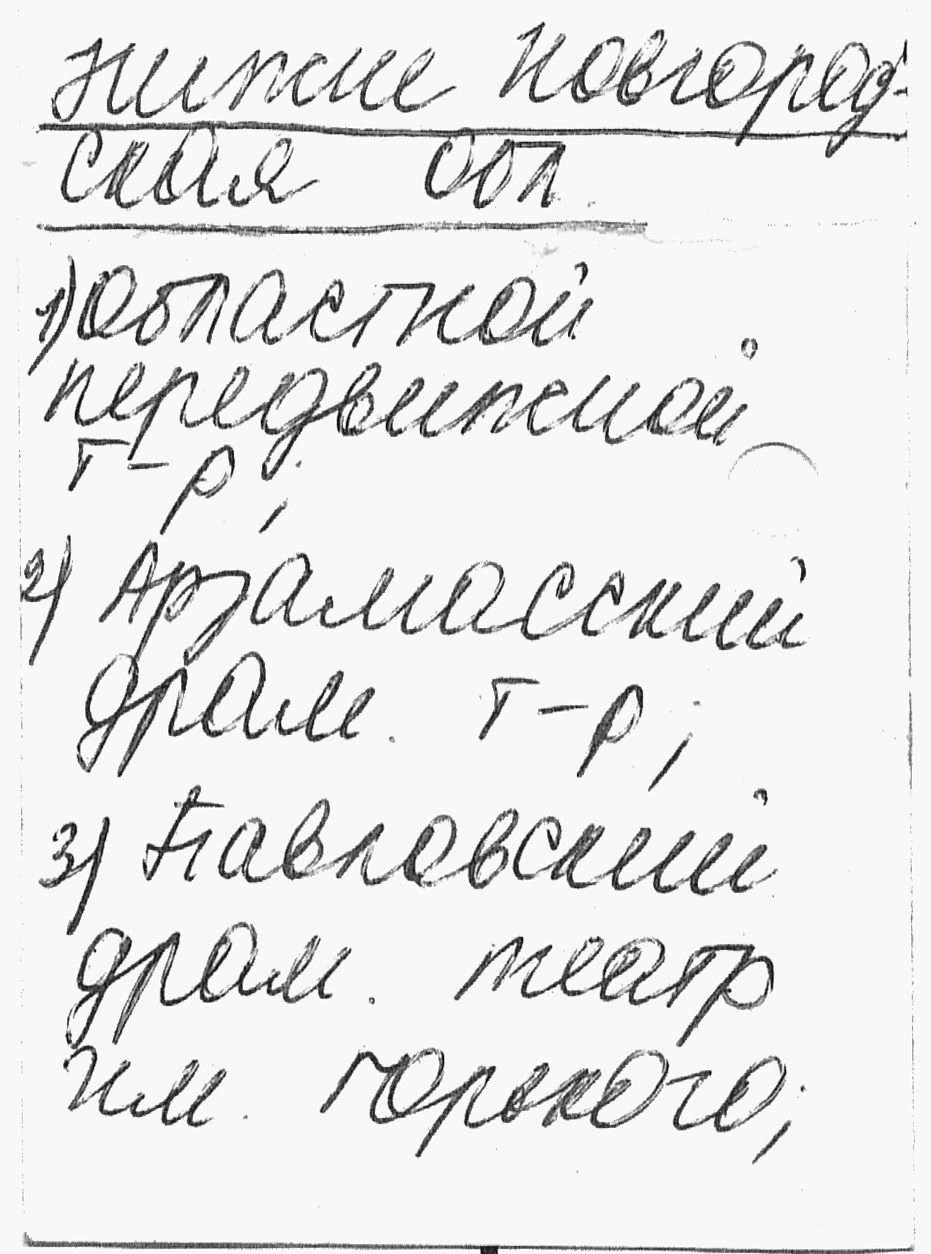 Нижне Новгород-
ская обл.
1) Областной
передвижной
т-р;
2) Арзамасский
драм. т-р;
3) Павловский
драм. театр
им. Горького;